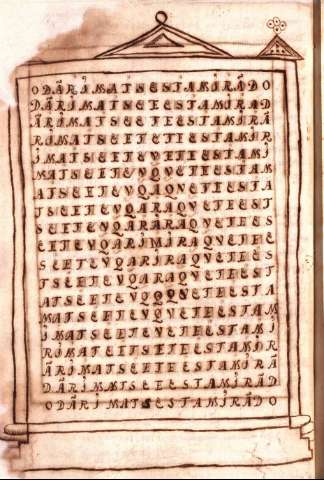 O D Ã R I M A T S E S T A M I R Ã D O
D Ã R I M A T S E E E S T A M I R A D
Ã R I M A T S E E T E E S T A M I R Ã
R I M A T S E E T E T E E S T A M I R
I M A T S E E T E V E T E E S T A M I
M A T S E E T E V Q V E T E E S T A M
A T S E E T E V Q A Q V E T E E S T A
T S E E T E V Q A R A Q V E T E E S T
S E E T E V Q A R A R A Q V E T E E S
E E T E V Q A R I M I R A Q V E T E E
S E E T E V Q A R A R A Q V E T E E S
T S E E T E V Q A R A Q V E T E E S T
A T S E E T E V Q Q Q V E T E E S T A
M A T S E E T E V Q V E T E E S T A M
I M A T S E E T E V E T E E S T A M I
R I M A T E E T S E T E E S T A M I R
Ã R I M A T S E E T E E S T A M I R Ã
D Ã R I M M T S E E E S T A M I R Ã D
O D Ã R I M A T S E S T A M I R Ã D O